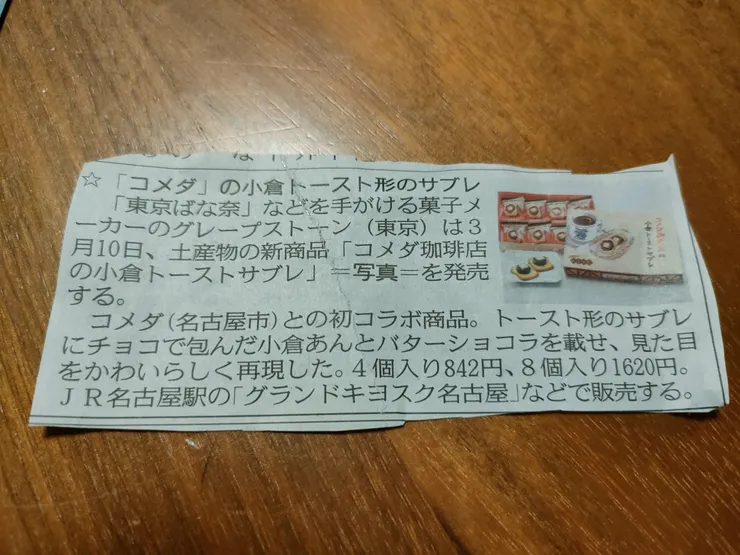 ☆「コメダ」の小倉トースト形のサブレ
「東京ばな奈」などを手がける菓子メ
ーカーのグレープストーン（東京）は３
月10日、土産物の新商品「コメダ珈琲店
の小倉トーストサブレ」＝写真＝を発売
する。
コメダ（名古屋市）との初コラボ商品。トースト形のサブレ
にチョコで包んだ小倉あんとバターショコラを載せ、見た目
をかわいらしく再現した。４個入り842円、８個入り1620円。
ＪＲ名古屋駅の「グランドキヨスク名古屋」などで販売する。
小倉トーストサブレ